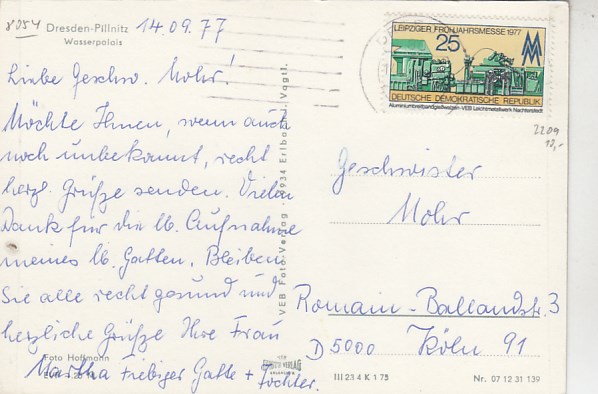 8054
Dresden-Pillnitz
Wasserpalais
14.09.77
Liebe Geschw. Mohr!
Möchte Ihnen, wenn auch
noch unbekannt, recht
herzl. Grüße senden. Vielen
Dank für die lb. Aufnahme
meines lb. Gatten. Bleiben
Sie alle recht gesund und
herzliche Grüße Ihre Frau
Martha Fiebiger Gatte + Tochter.
Foto Hoffmann
VEB Foto-Verlag · 9934 Erlbach i. Vogtl.
VERLAG
III 23 4 K 1 75
Nr. 07 12 31 139
LEIPZIGER FRÜHJAHRSMESSE 1977
25
MM
DEUTSCHE DEMOKRATISCHE REPUBLIK
Aluminiumbreitbandgießwalzen · VEB Leichtmetallwerk Nachterstedt
2209
10,-
Geschwister
Mohr
Romain-Rollandstr. 3
D 5000 Köln 91